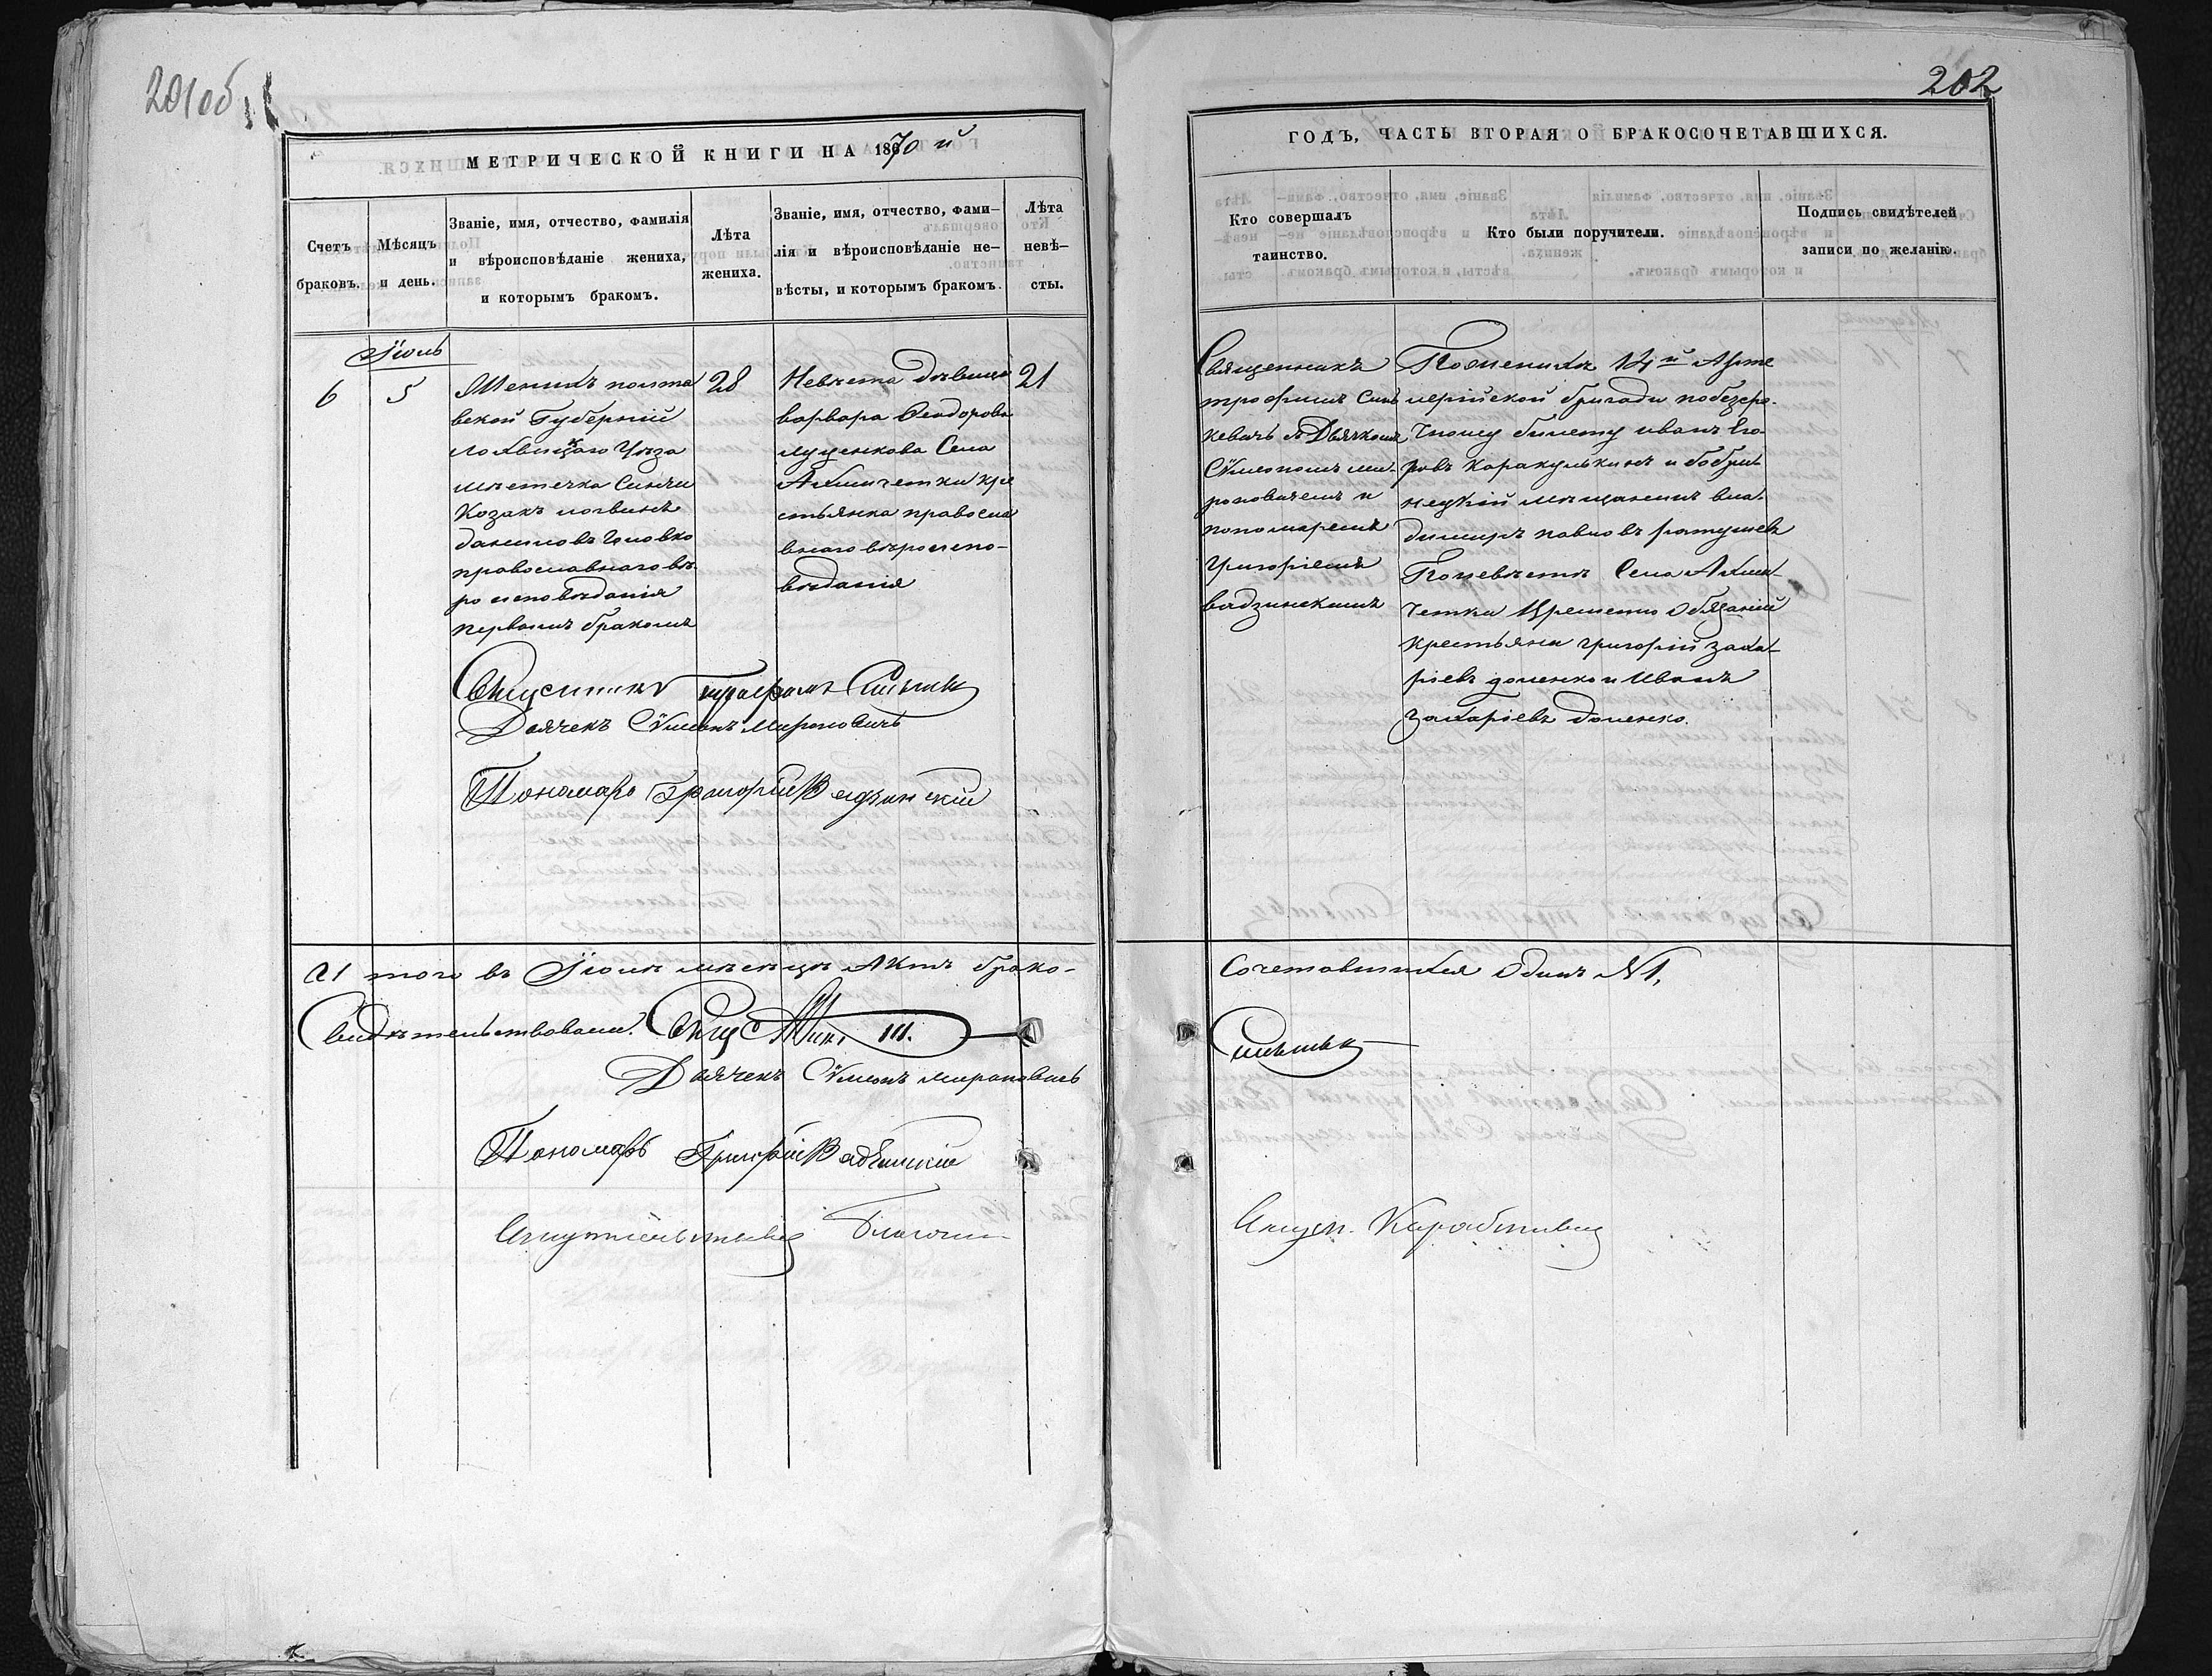 201об
МЕТРИЧЕСКОЙ КНИГИ НА 1870й
Счетъ браковъ.
Мѣсяцъ и день.
Званіе, имя, отчество, фамилія
и вѣроисповѣданіе жениха,
и которымъ бракомъ.
Лѣта
жениха.
Званіе, имя, отчество, фами-
лія и вѣроисповѣданіе не-
вѣсты, и которымъ бракомъ.
Лѣта
невѣ-
сты.
Іюль
6
5
Женихъ полта
вской Губерніи
Лохвицкаго Уѣзда
мѣстечка Сенчи
Козакъ логвинъ
даниловъ Головко
православнаго вѣ-
роисповѣданія
первымъ бракомъ
28
Невѣста дѣвица
варвара Феодорова
луценкова Села
Ахмечетки кре
стьянка правосла
внаго вѣроиспо-
вѣданія
21
Священникъ трофимъ
Дьячекъ Сѵмеонъ Мироновичъ
Пономарь Григорій
А того въ Іюлѣ мѣсяцѣ Актъ брако-
Свидѣтельствовали:
Дьячекъ Сѵмеонъ мироновичъ
Пономарь Григорій
202
ГОДЪ, ЧАСТЬ ВТОРАЯ О БРАКОСОЧЕТАВШИХСЯ.
Кто совершалъ
таинство.
Кто были поручители.
Подпись свидѣтелей
записи по желанію.
Священникъ
трофимъ Синь
кевичъ съ Дьячкомъ
Сѵмеономъ ми-
роновичемъ и
пономаремъ
Григоріемъ
вадзинскимъ
По женихѣ 14й Арти
лерійской бригады по безсро-
чному билету иванъ Его-
ровъ каракулькинъ и бобры
нецкій мѣщанинъ вла-
димиръ павловъ
По невѣстѣ Села Ахме-
четки Временно обязаній
крестьяне григорій заха-
ріевъ доленко и Иванъ
Захаріевъ доленко.
Сочетавшихся Одинъ №1,